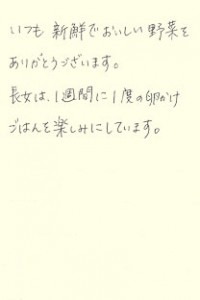 いつも 新鮮でおいしい野菜を
ありがとうございます。
長女は、1週間に1度の卵かけ
ごはんを楽しみにしています。